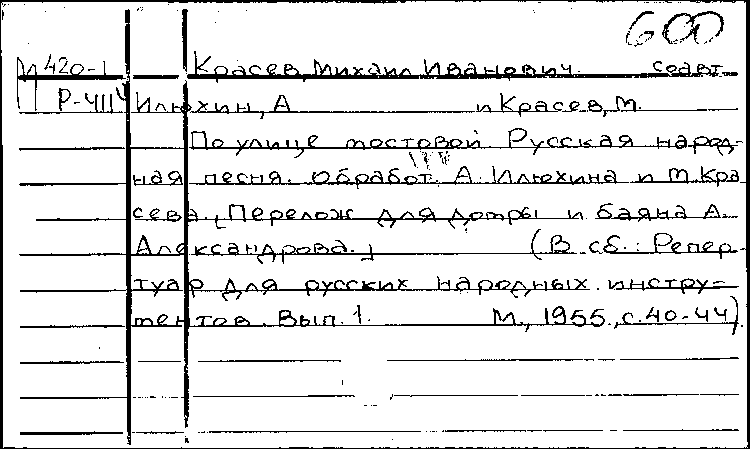 600
П 420-1 Красев, Михаил Иванович. соавт.
Р-4114 Илюхин, А и Красев, М.
По улице мостовой Русская народ-
ная песня. Обработ. А. Илюхина и М. Кра
сева. [Перелож для домры и баяна А.
Александрова.] (В сб.: Репер-
туар для русских народных инстру-
ментов. Вып. 1. М., 1955, с. 40-44)